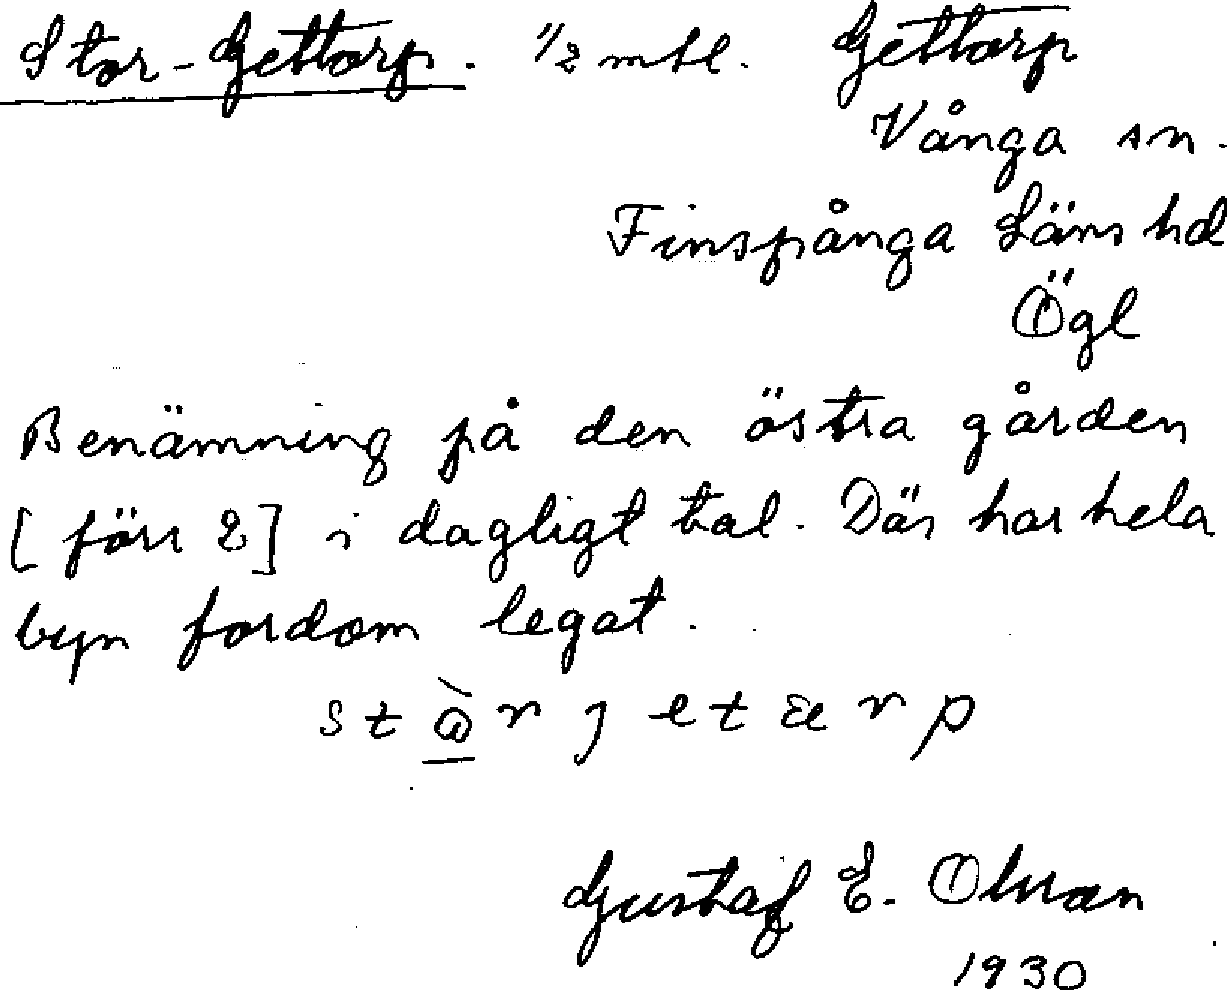 Stor-Gettorp. 1/2 mtl. Gettorp
Vånga sn.
Finspånga Läns hd
Ögl
Benämning på den östra gården
[förr 2] i dagligt tal. Där har hela
byn fordom legat.
Gustaf E. Olsson
1930